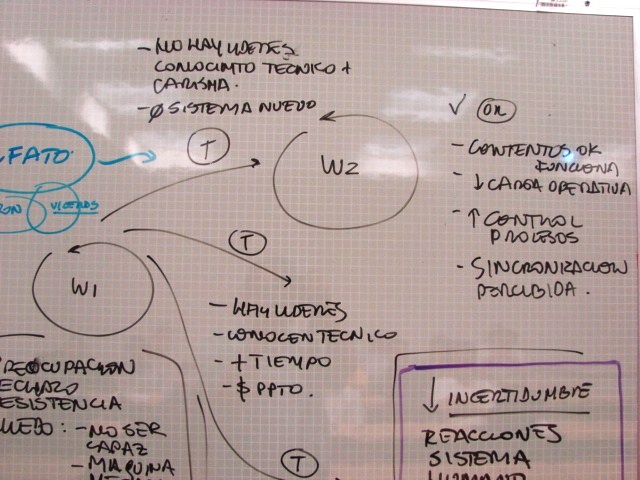 - NO HAY LIDERES
CONOCIMTO TECNICO +
CARISMA.
- Ø SISTEMA NUEVO
T
W2
✓ OK
- CONTENTOS OK
FUNCIONA
- ↓ CARGA OPERATIVA
- ↑ CONTROL
PROCESOS
- SINCRONIZACION
PERCIBIDA.
FATO
VICEROS
W1
T
- HAY LIDERES
- CONOCEN TECNICO
- + TIEMPO
- $ PPTO.
REOCUPACION
ECHAZO
ESISTENCIA
IEDO: - NO SER
CAPAZ
- MAQUINA
T
↓ INCERTIDUMBRE
REACCIONES
SISTEMA
HUMANO